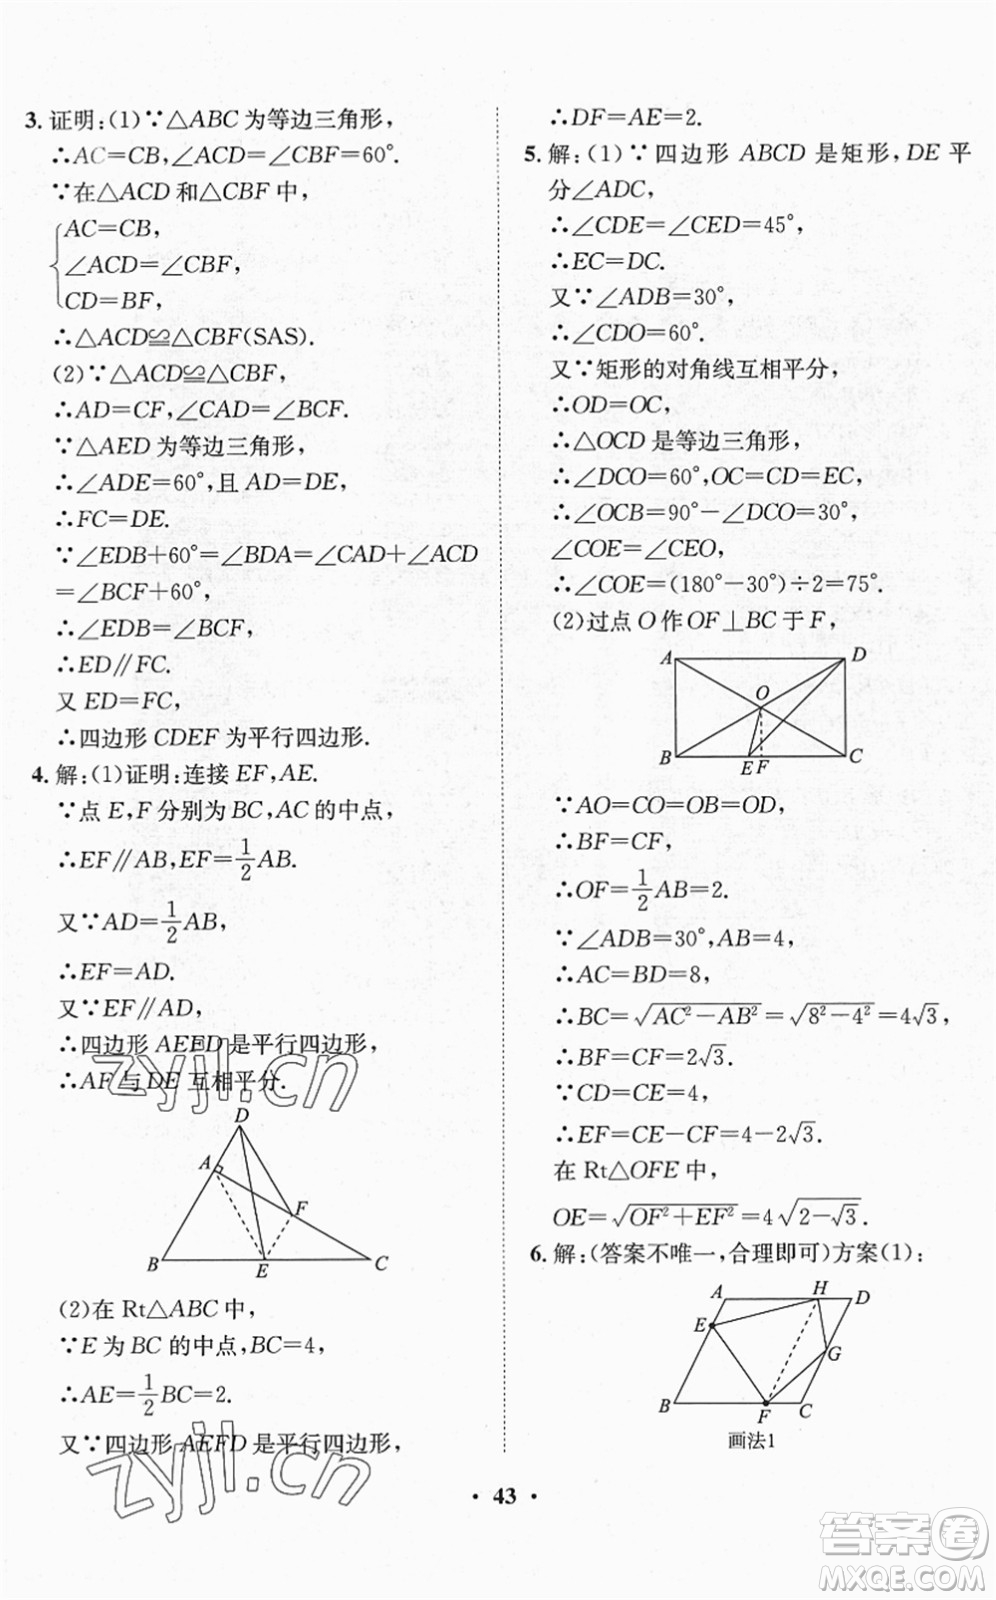 3. 证明:(1)∵△ABC 为等边三角形,
∴AC=CB,∠ACB=∠CBF=60°.
∵在△ACD 和△CBF 中,
AC=CB,
∠ACD=∠CBF,
CD=BF,
∴△ACD≌△CBF(SAS).
(2)∵△ACD≌△CBF,
∴AD=CF,∠CAD=∠BCF.
∵△AED 为等边三角形,
∴∠ADE=60°,且 AD=DE,
∴FC=DE.
∵∠EDB+60°=∠BDA=∠CAD+∠ACD
=∠BCF+60°,
∴∠EDB=∠BCF,
∴ED∥FC.
又 ED=FC,
∴四边形 CDEF 为平行四边形.
4. 解:(1)证明:连接 EF,AE.
∵点 E,F 分别为 BC,AC 的中点,
∴EF∥AB,EF=1/2AB.
又∵AD=1/2AB,
∴EF=AD.
又∵EF∥AD,
∴四边形 AEFD 是平行四边形,
∴AF 与 DE 互相平分.
D
A
F
B
E
C
(2)在 Rt△ABC 中,
∵E 为 BC 的中点,BC=4,
∴AE=1/2BC=2.
又∵四边形 AEFD 是平行四边形,
∴DF=AE=2.
5. 解:(1)∵四边形 ABCD 是矩形,DE 平
分∠ADC,
∴∠CDE=∠CED=45°,
∴EC=DC.
又∵∠ADB=30°,
∴∠CDO=60°.
又∵矩形的对角线互相平分,
∴OD=OC,
∴△OCD 是等边三角形,
∴∠DCO=60°,OC=CD=EC,
∴∠OCB=90°-∠DCO=30°,
∠COE=∠CEO,
∴∠COE=(180°-30°)÷2=75°.
(2)过点 O 作 OF⊥BC 于 F,
A
D
O
B
E F
C
∵AO=CO=OB=OD,
∴BF=CF,
∴OF=1/2AB=2.
∵∠ADB=30°,AB=4,
∴AC=BD=8,
∴BC=√(AC²-AB²)=√(8²-4²)=4√3,
∴BF=CF=2√3.
∵CD=CE=4,
∴EF=CE-CF=4-2√3.
在 Rt△OFE 中,
OE=√(OF²+EF²)=4√(2-√3).
6. 解:(答案不唯一,合理即可)方案(1):
A
H
D
E
G
B
F
C
画法1
· 43 ·
zyjl.cn
zyjl.cn
答案卷
MXQE.COM